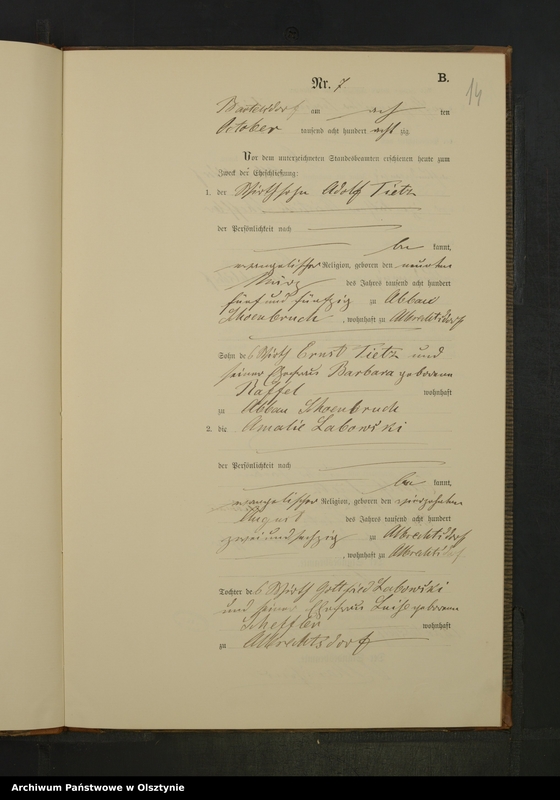 Nr. 7.
B.
14
am acht ten
October tausend acht hundert achtzig
Vor dem unterzeichneten Standesbeamten erschienen heute zum
Zweck der Eheschließung:
1. der Wirthssohn Adolf Tietz
der Persönlichkeit nach
be kannt,
evangelischer Religion, geboren den neunten
März des Jahres tausend acht hundert
fünf und fünfzig zu Abbau
Schoenbruch, wohnhaft zu Albrechtsdorf
Sohn des Wirth Ernst Tietz und
seiner Ehefrau Barbara geborene
Raffel wohnhaft
zu Abbau Schoenbruch
2. die Amalie Labowski
der Persönlichkeit nach
be kannt,
evangelischer Religion, geboren den vierzehnten
August des Jahres tausend acht hundert
zwei und sechzig zu Albrechtsdorf
, wohnhaft zu Albrechtsdorf
Tochter des Wirth Gottfried Labowski
und seiner Ehefrau Luise geborene
Scheffler wohnhaft
zu Albrechtsdorf
Archiwum Państwowe w Olsztynie